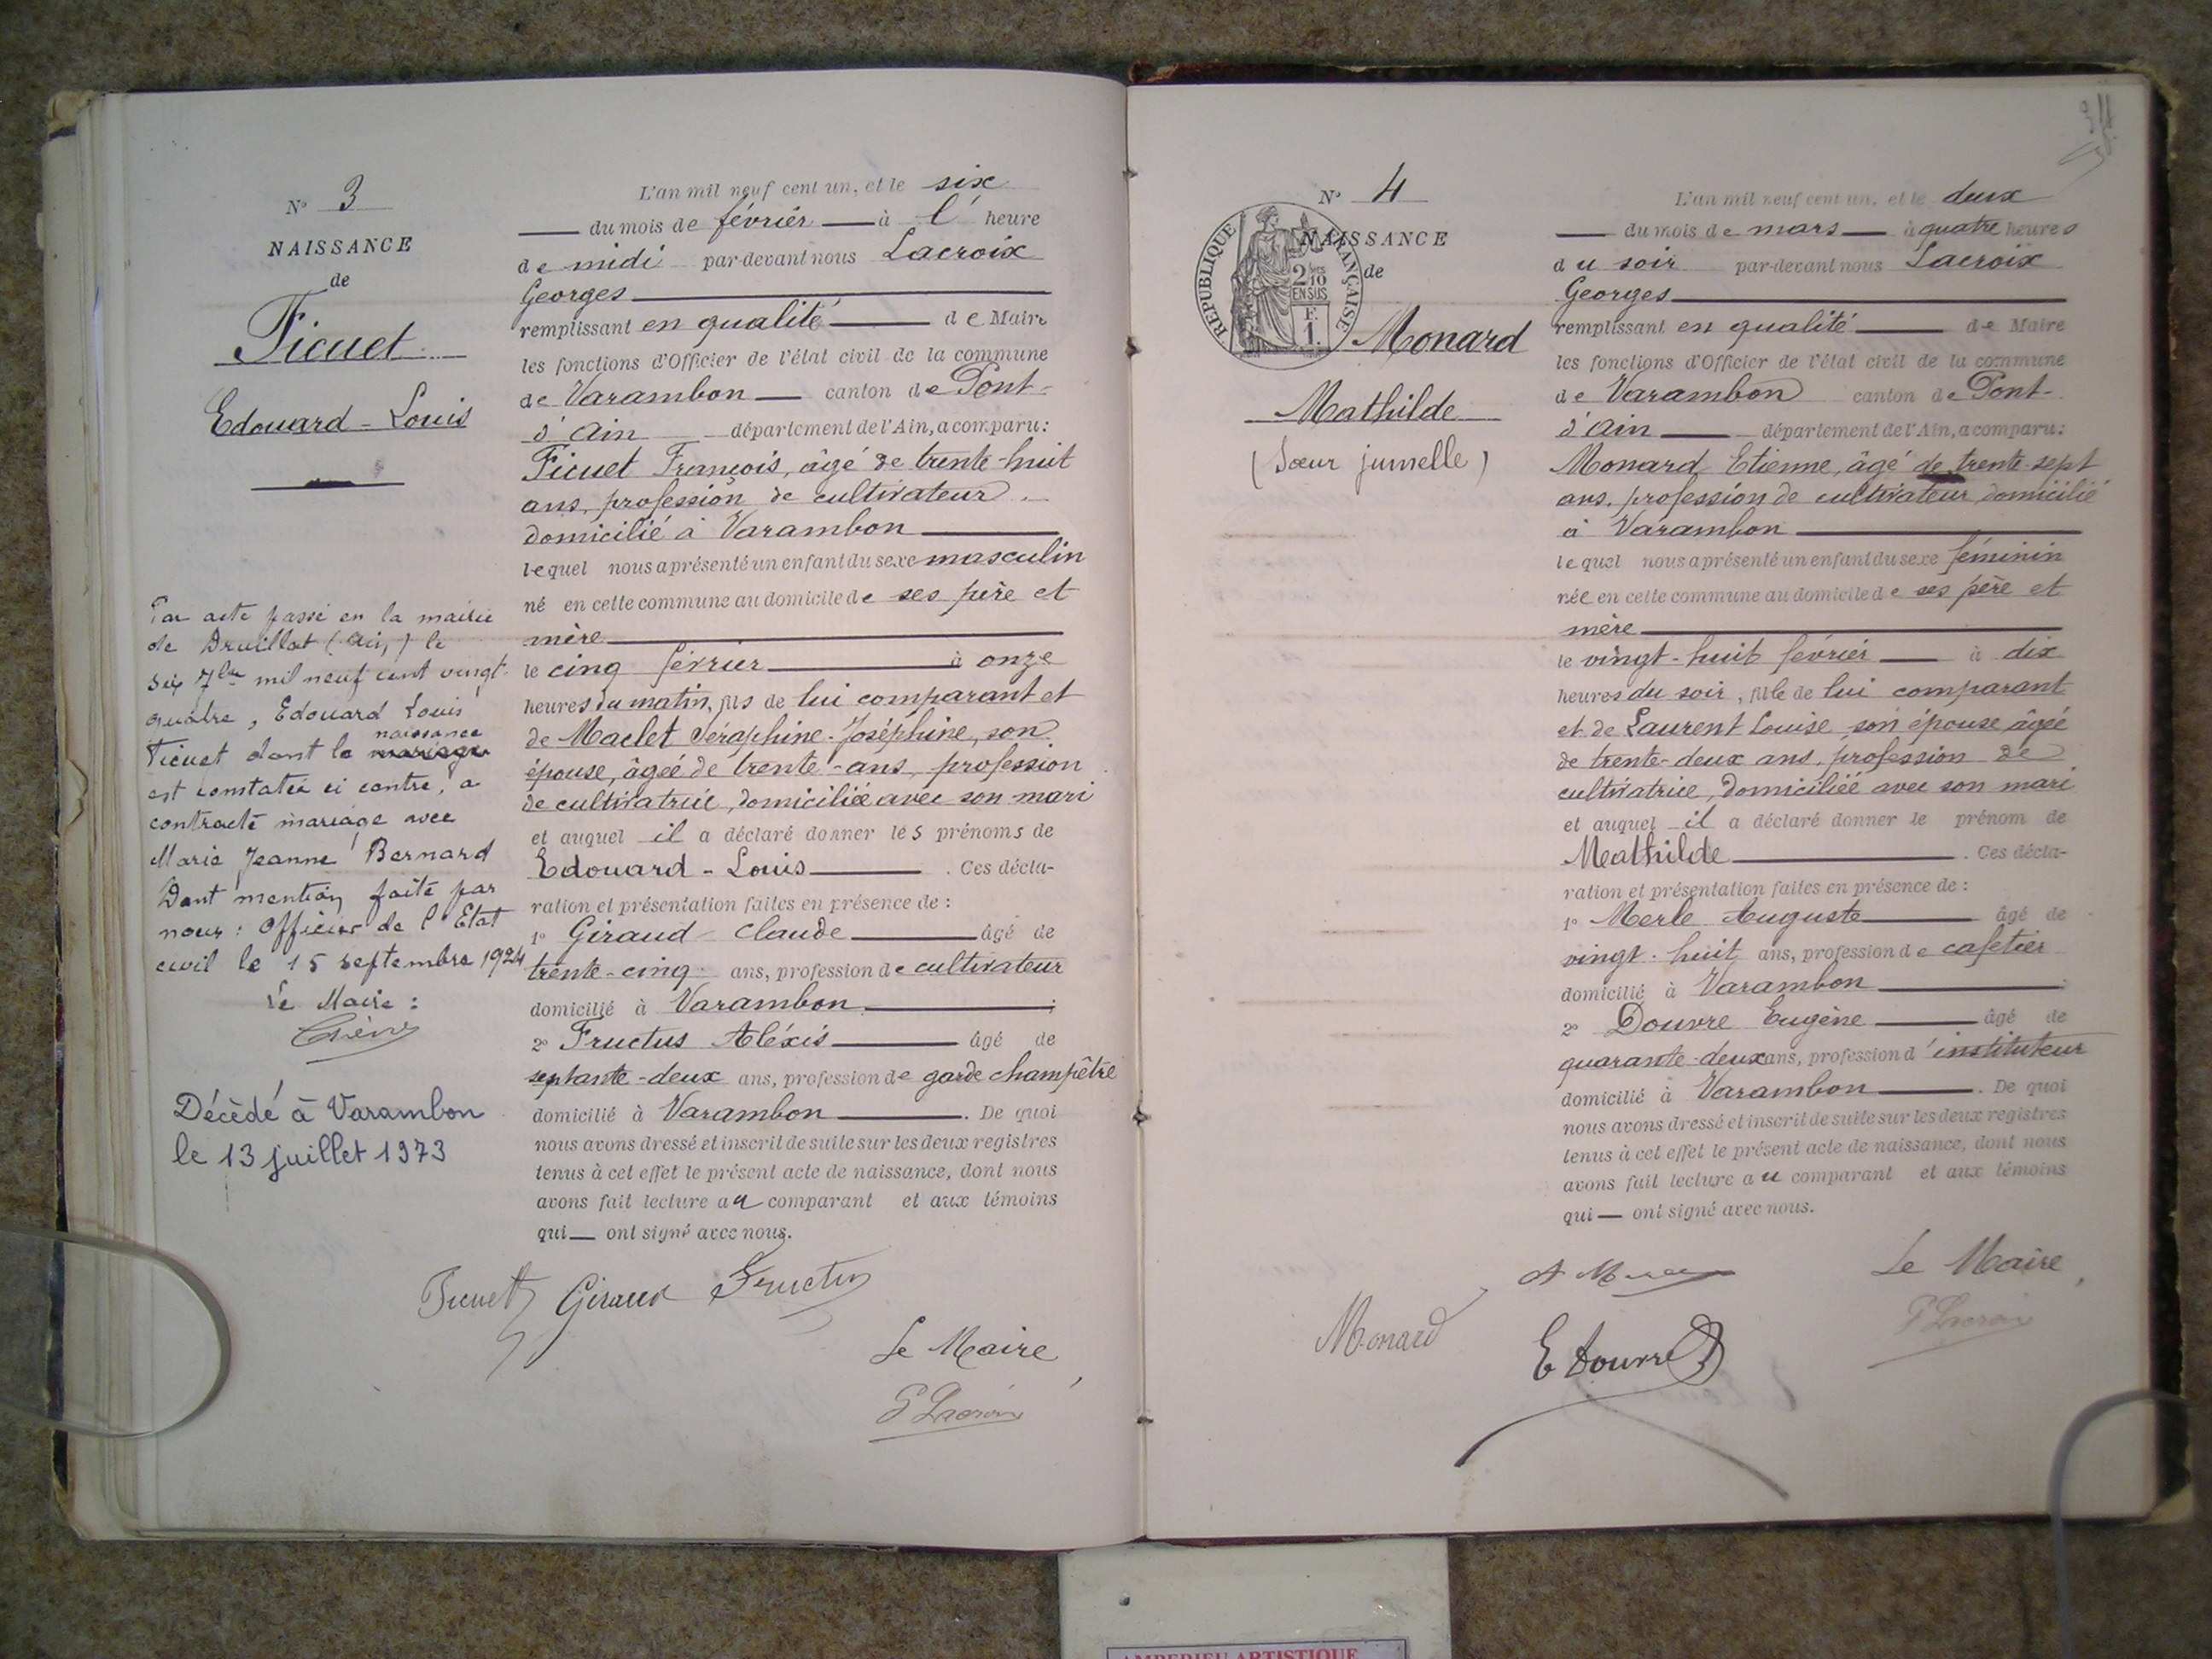 N° 3
NAISSANCE
de
Ficuet
Edouard - Louis
Par acte passé en la mairie
de Druillat (Ain) le
six 7bre mil neuf cent vingt-
quatre, Edouard Louis
naissance
Ficuet dont la mariage
est constatée ci contre, a
contracté mariage avec
Marie Jeanne Bernard
Dont mention faite par
nous : Officier de l'Etat
civil le 15 septembre 1924
Le Maire :
Décédé à Varambon
le 13 juillet 1973
L'an mil neuf cent un, et le six
du mois de février à l' heure
de midi par-devant nous Lacroix
Georges
remplissant en qualité de Maire
les fonctions d'Officier de l'état civil de la commune
de Varambon canton de Pont-
d'Ain département de l'Ain, a comparu :
Ficuet François, âgé de trente-huit
ans, profession de cultivateur
domicilié à Varambon
lequel nous a présenté un enfant du sexe masculin
né en cette commune au domicile de ses père et
mère
le cinq février à onze
heures du matin, fils de lui comparant et
de Maclet Séraphine-Joséphine, son
épouse, âgée de trente-ans, profession
de cultivatrice, domiciliée avec son mari
et auquel il a déclaré donner les prénoms de
Edouard - Louis . Ces décla-
ration et présentation faites en présence de :
1° Giraud Claude âgé de
trente-cinq ans, profession de cultivateur
domicilié à Varambon ;
2° Fructus Aléxis âgé de
septante-deux ans, profession de garde champêtre
domicilié à Varambon . De quoi
nous avons dressé et inscrit de suite sur les deux registres
tenus à cet effet le présent acte de naissance, dont nous
avons fait lecture au comparant et aux témoins
qui ont signé avec nous.
Ficuet Giraud Fructus
Le Maire,
G Lacroix
N° 4
NAISSANCE
de
RÉPUBLIQUE FRANÇAISE
2/10
EN SUS
F.
1.
Monard
Mathilde
(Sœur jumelle)
L'an mil neuf cent un, et le deux
du mois de mars à quatre heures
du soir par-devant nous Lacroix
Georges
remplissant en qualité de Maire
les fonctions d'Officier de l'état civil de la commune
de Varambon canton de Pont-
d'Ain département de l'Ain, a comparu :
Monard Etienne, âgé de trente-sept
ans, profession de cultivateur domicilié
à Varambon
lequel nous a présenté un enfant du sexe féminin
née en cette commune au domicile de ses père et
mère
le vingt-huit février à dix
heures du soir, fille de lui comparant
et de Laurent Louise son épouse âgée
de trente-deux ans, profession de
cultivatrice, domiciliée avec son mari
et auquel il a déclaré donner le prénom de
Mathilde . Ces décla-
ration et présentation faites en présence de :
1° Merle Auguste âgé de
vingt-huit ans, profession de cafetier
domicilié à Varambon
2° Douvre Eugène âgé de
quarante-deux ans, profession d'instituteur
domicilié à Varambon . De quoi
nous avons dressé et inscrit de suite sur les deux registres
tenus à cet effet le présent acte de naissance, dont nous
avons fait lecture au comparant et aux témoins
qui ont signé avec nous.
Le Maire,
Monard
E Douvre
G Lacroix
AMBERIEU ARTISTIQUE